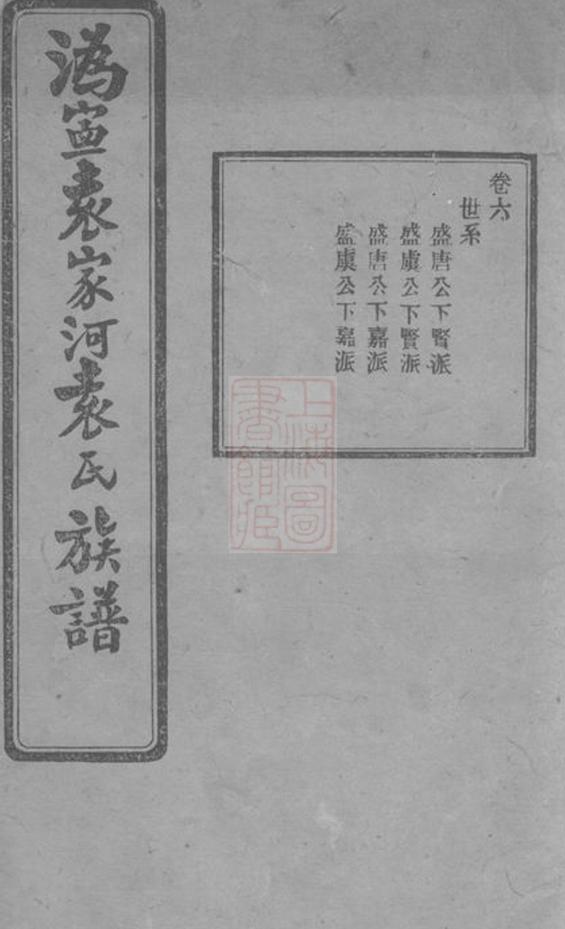 溈寍袁家河袁氏族譜
卷六
世系
盛唐公下賢派
盛虞公下賢派
盛唐公下嘉派
盛虞公下嘉派
上海圖
書館藏